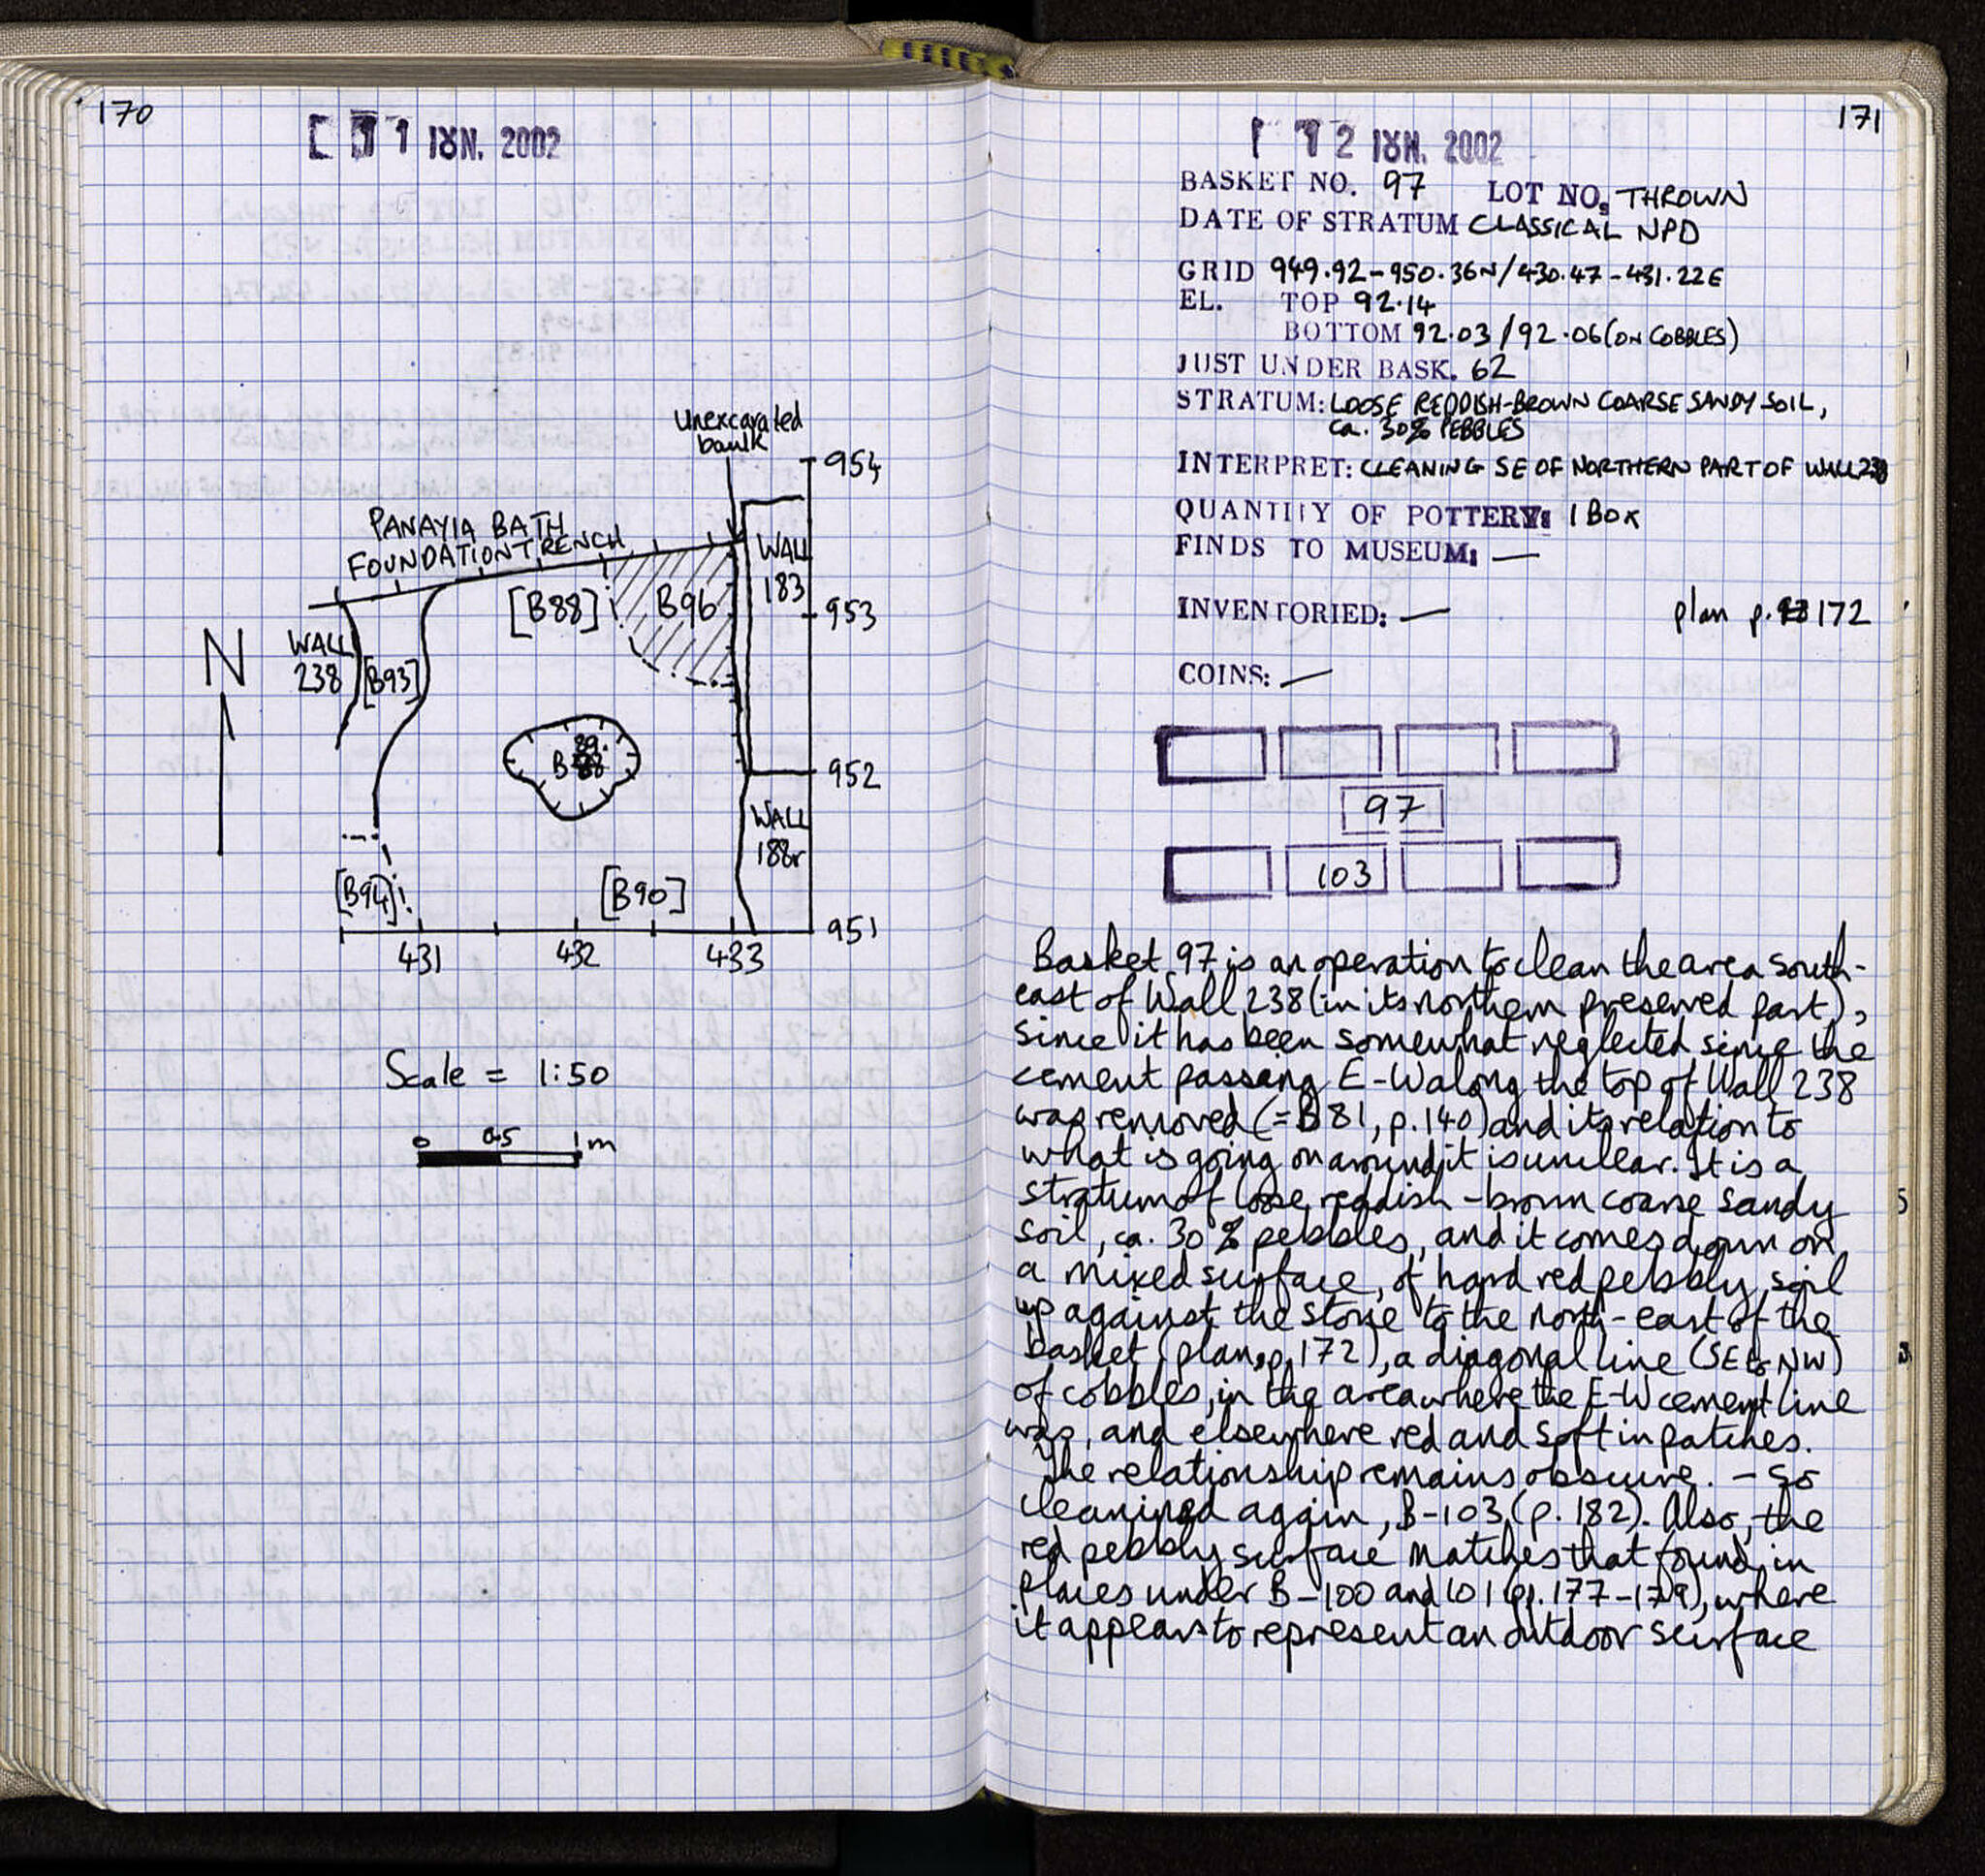 170
11 ΙΟΥΝ. 2002
unexcavated
baulk
954
PANAYIA BATH
FOUNDATION TRENCH
WALL
183
[B88]
B96
953
N
WALL
238
[B93]
B
952
WALL
188r
[B94]
[B90]
951
431 432 433
Scale = 1:50
0 0.5 1m
171
12 ΙΟΥΝ. 2002
BASKET NO. 97 LOT NO. THROWN
DATE OF STRATUM CLASSICAL NPD
GRID 949.92-950.36N/430.47-431.22E
EL. TOP 92.14
BOTTOM 92.03/92.06(ON COBBLES)
JUST UNDER BASK. 62
STRATUM: LOOSE REDDISH-BROWN COARSE SANDY SOIL,
ca. 30% PEBBLES
INTERPRET: CLEANING SE OF NORTHERN PART OF WALL 238
QUANTITY OF POTTERY: 1 BOX
FINDS TO MUSEUM: —
INVENTORIED: — plan p. 172
COINS: —
97
103
Basket 97 is an operation to clean the area south-
east of Wall 238 (in its northern preserved part),
since it has been somewhat neglected since the
cement passing E-W along the top of Wall 238
was removed (=B81, p.140) and its relation to
what is going on around it is unclear. It is a
stratum of loose reddish-brown coarse sandy
soil, ca. 30% pebbles, and it comes down on
a mixed surface, of hard red pebbly soil
up against the stone to the north-east of the
basket (plan, p. 172), a diagonal line (SE to NW)
of cobbles, in the area where the E-W cement line
was, and elsewhere red and soft in patches.
The relationship remains obscure. - So
cleanined again, B-103 (p. 182). Also, the
red pebbly surface matches that found in
places under B-100 and 101 (pp. 177-179), where
it appears to represent an outdoor surface